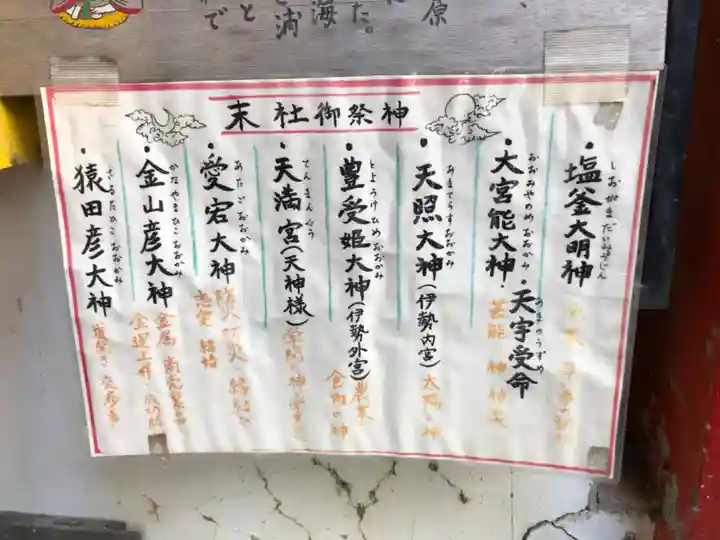 原
た。
海
と浦
で
末社御祭神
・塩釜大明神
しおがまだいみょうじん
・大宮能大神・天宇受命
おおみやのめおおかみ
あまのうずめ
芸能の神
・天照大神(伊勢内宮)
あまてらすおおかみ
太陽の神
・豊受姫大神(伊勢外宮)
とようけひめおおかみ
農業
食物の神
・天満宮(天神様)
てんまんぐう
学問の神
・愛宕大神
あたごおおかみ
防火
・金山彦大神
かなやまひこおおかみ
金属
金運上昇
・猿田彦大神
さるたひこおおかみ
道開き